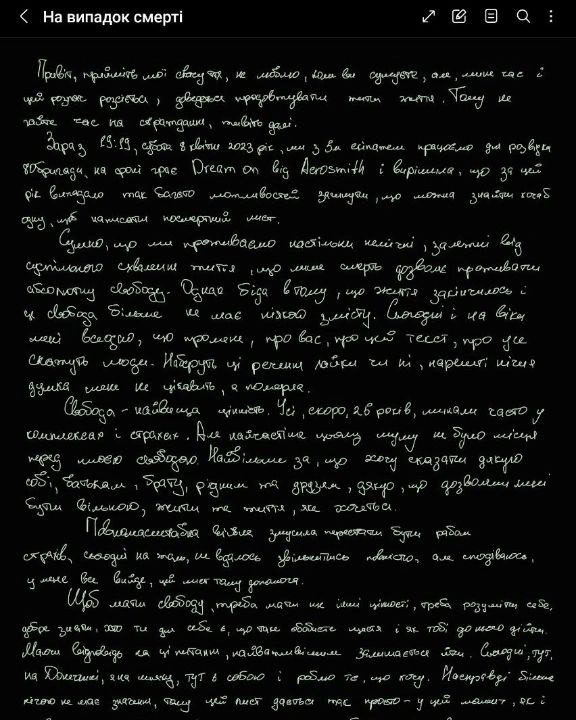 На випадок смерті
Привіт, прийміть мої співчуття, не люблю, коли ви сумуєте, але, мине час і
цей розпач розсіється, доведеться продовжувати жити життя. Тому не
гайте час на страждання, живіть далі.
Зараз 19:19, субота 8 квітня 2023 рік, ми з 3м екіпажем працюємо для розвідки
80 бригади, на фоні грає Dream on від Aerosmith і вирішила, що за цей
рік випадало так багато можливостей загинути, що можна знайти хоча б
одну, щоб написати посмертний лист.
Сумно, що ми проживаємо настільки налічні, залежні від
суспільного схвалення життя, що лише смерть дозволяє проживати
абсолютну свободу. Однак біда в тому, що життя закінчилось і
ця свобода більше не має ніякого змісту. Сьогодні і на віки
мені всеодно, що про мене, про вас, про цей текст, про усе
скажуть люди. Наберуть ці речення лайки чи ні, нарешті нічия
думка мене не цікавить, я померла.
Свобода - найвища цінність. Усі, скоро, 26 років, минали часто у
комплексах і страхах. Але найчастіше цьому мулу не було місця
перед моєю свободою. Найбільше за, що хочу сказати дякую
собі, батькам, брату, рідним та друзям, дякую, що дозволяли мені
бути вільною, жити те життя, яке хочеться.
Повномасштабна війна змусила перестати бути рабом
страхів, сьогодні на жаль, не вдалось звільнитись повністю, але сподіваюсь,
у мене все вийде, цей лист тому допомога.
Щоб мати свободу, треба мати ще інші цінності, треба розуміти себе,
добре знати, хто ти для себе є, що таке особисте щастя і як тобі до нього дійти.
Маючи відповідь на ці питання, найважливішим залишається йти. Сьогодні, тут,
на Донеччині, я на шляху, тут я собою і роблю те, що хочу. Насправді більше
нічого не має значення, тому цей лист дається так просто - у цей момент, як і